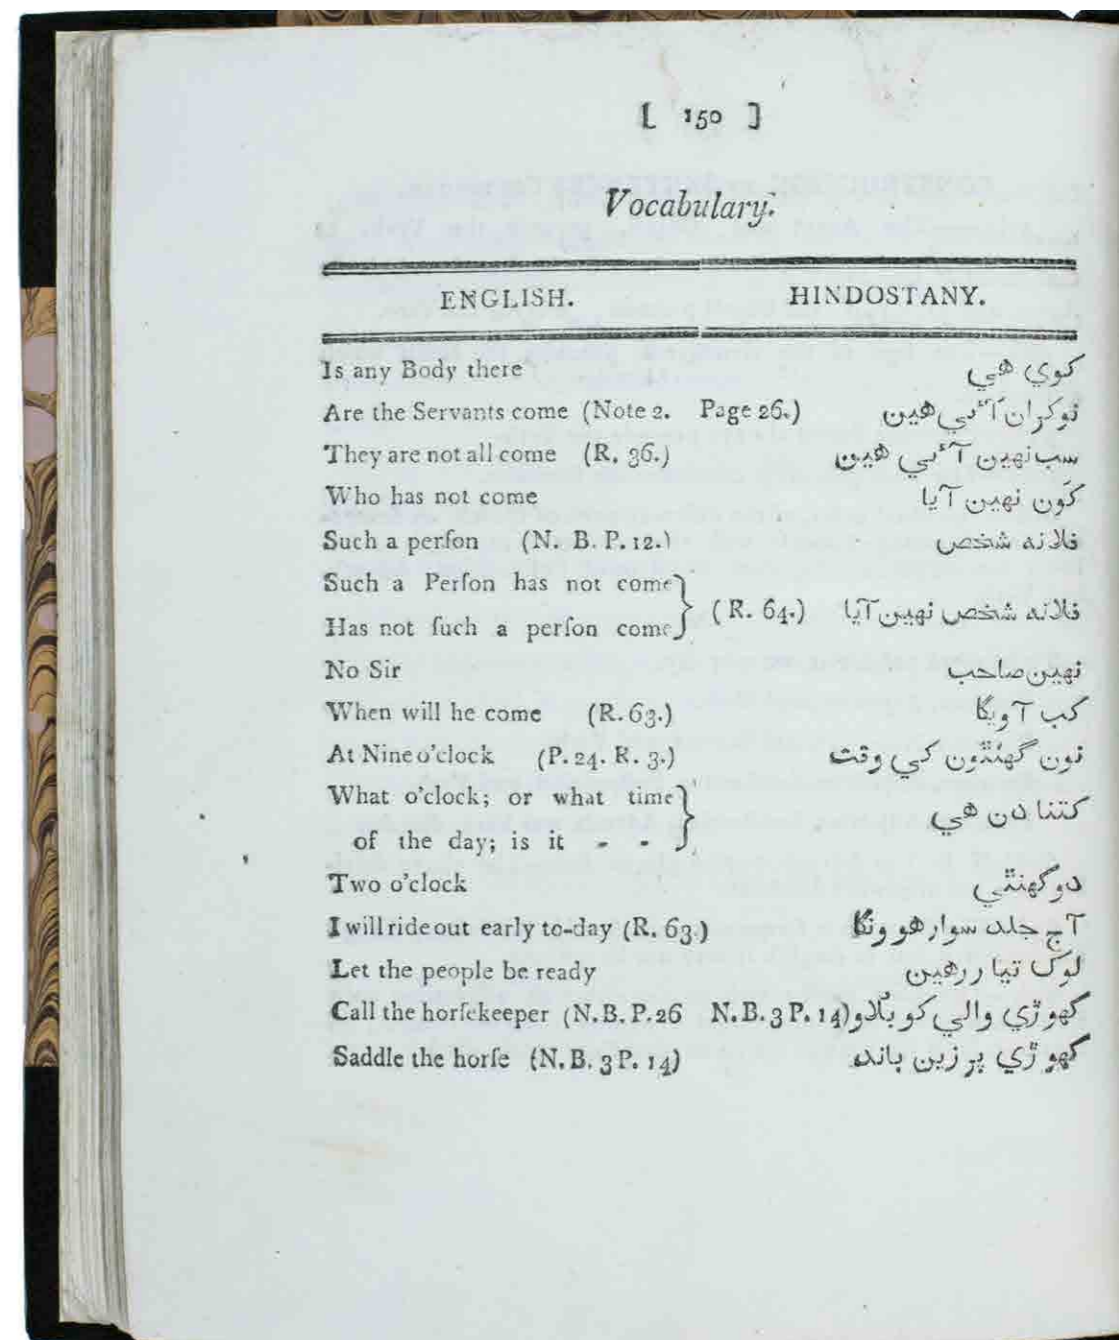 [ 150 ]
Vocabulary.
ENGLISH. HINDOSTANY.
Is any Body there كوي هي
Are the Servants come (Note 2. Page 26.) نوكران آئي هين
They are not all come (R. 36.) سب نهين آئي هين
Who has not come كَون نهين آيا
Such a perſon (N. B. P. 12.) فلانه شخص
Such a Perſon has not come
(R. 64.) فلانه شخص نهين آيا
Has not ſuch a perſon come
No Sir نهين صاحب
When will he come (R. 63.) كب آويگا
At Nine o'clock (P. 24. R. 3.) نون گهنٿون كي وقت
What o'clock; or what time
كتنا دن هي
of the day; is it - -
Two o'clock دو گهنٿي
I will ride out early to-day (R. 63.) آج جلد سوار هوونگا
Let the people be ready لوگ تيار رهين
Call the horſekeeper (N. B. P. 26 N. B. 3 P. 14) گهوڙي والي كو بُلاو
Saddle the horſe (N. B. 3 P. 14) گهوڙي پر زين باند